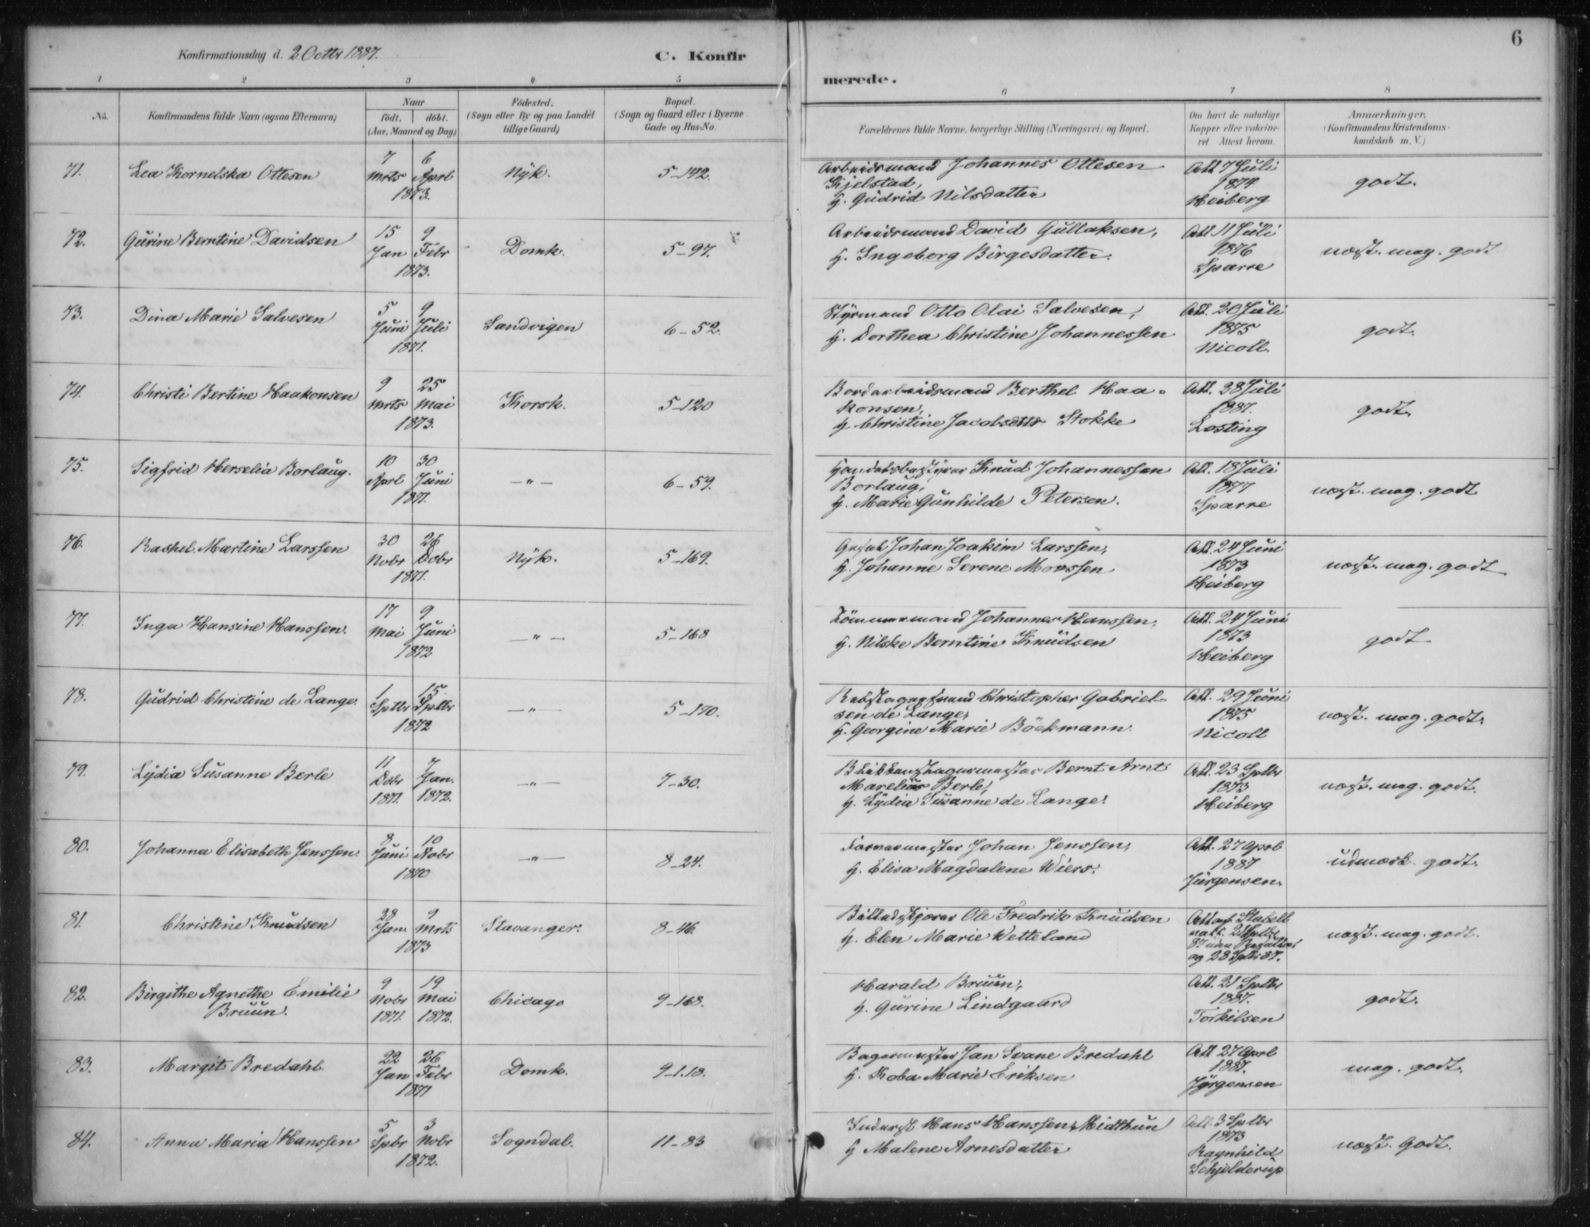 Konfirmationsdag d. 2 Octbr 1887.
C. Konfir
merede.
6
1 2 3 4 5 6 7 8
No.
Konfirmandens fulde Navn (ogsaa Efternavn)
Naar
födt. döbt.
(Aar, Maaned og Dag)
Födested.
(Sogn eller By og paa Landet
tillige Gaard)
Bopæl.
(Sogn og Gaard eller i Byerne
Gade og Hus-No.
Forældrenes fulde Navne, borgerlige Stilling (Næringsvei) og Bopæl.
Om havt de naturlige
Kopper eller vaccine-
ret. Attest herom.
Anmærkninger.
(Konfirmandens Kristendoms-
kundskab m. V.)
71. Lea Kornelska Ottesen
7 6
Mrts Aprl
1873.
Nÿk. 5-142.
Arbeidsmand Johannes Ottesen
Kjelstad,
H. Gudrid Nilsdatter
Att 7 Juli
1874
Heiberg
godt.
72. Gurine Berntine Davidsen
15 9
Jan Febr
1873.
Domk. 5-97.
Arbeidsmand David Gullaksen,
H. Ingeborg Birgesdatter.
Att 11 Juli
1876
Sparre
næst. mag. godt
73. Dina Marie Salvesen
5 9
Juni Juli
1871.
Sandvigen 6-52.
Styrmand Otto Olai Salvesen,
H. Dorthea Christine Johannessen
Att. 20 Juli
1875
Nicoll.
godt.
74. Christi Bertine Haakonsen
9 25
Mrts Mai
1873.
Korsk. 5-120
Bordarbeidsmand Berthel Haa-
konsen,
H. Christine Jacobsdttr Stokke
Att. 28 Juli
1887.
Losting
godt.
75. Sigfrid Herselia Borlaug.
10 30
Aprl Juni
1871.
-"- 6-59.
Knud Johannessen
Borlaug,
H. Marie Gunhilde Petersen.
Att. 18 Juli
1877
Sparre
næst. mag. godt
76. Rashel Martine Larssen
30 26
Nobr Dobr
1871.
Nÿk. 5-169.
Johan Joakim Larssen,
H. Johanne Serene Monssen
Att. 24 Juni
1873
Heiberg
næst. mag. godt
77. Inga Hansine Hanssen.
17 9
Mai Juni
1872
-"- 5-168
Tömmermand Johannes Hanssen,
H. Nilske Berntine Knudsen
Att. 24 Juni
1873
Heiberg
godt
78. Gudrid Christine de Lange
1 15
Sptbr Sptbr
1872
-"- 5-170.
Christopher Gabriel-
sen de Lange,
H. Georgine Marie Böckmann
Att. 29 Juni
1875
Nicoll
næst. mag. godt.
79. Lydia Susanne Berle
11 7
Dobr Jan.
1871. 1872.
-"- 7-30.
Blikkenslagermester Bernt Arnt
Marelius Berle,
H. Lydia Susanne de Lange.
Att. 23 Sptbr
1873
Heiberg
næst. mag. godt.
80. Johanna Elisabeth Jenssen.
8 10
Juni Nobr
1870
-"- 8-24.
Farvermester Johan Jenssen,
H. Elisa Magdalene Wiers.
Att. 27 Aprl
1887
Jürgensen.
udmærk. godt.
81. Christine Knudsen
28 9
Jan Mrts
1873
Stavanger. 8-46
Ole Fredrik Knudsen
H. Elen Marie Wetteland
Att. af Stabell
og 23 Sptbr 87.
næst. mag. godt.
82. Birgithe Agnethe Emilie
Bruun.
9 19
Nobr Mai
1871. 1872.
Chicago 9-168.
Harald Bruun,
H. Gurine Lindgaard
Att. 21 Sptbr
1887.
Torkilsen
godt.
83. Margit Bredahl
22 26
Jan Febr
1871
Domk. 9-118.
Bagermester Jan Svane Bredahl
H. Koba Marie Eriksen
Att 27 Aprl
1887.
Jörgensen
mag. godt.
84. Anna Maria Hanssen
5 3
Spbr Nobr
1872.
Sogndal. 11-83
Inderst Hans Hanssen Midthun
H Malene Arnesdatter
Att. 3 Sptbr
1873
Ragnhild
Schjelderup
næst. godt.